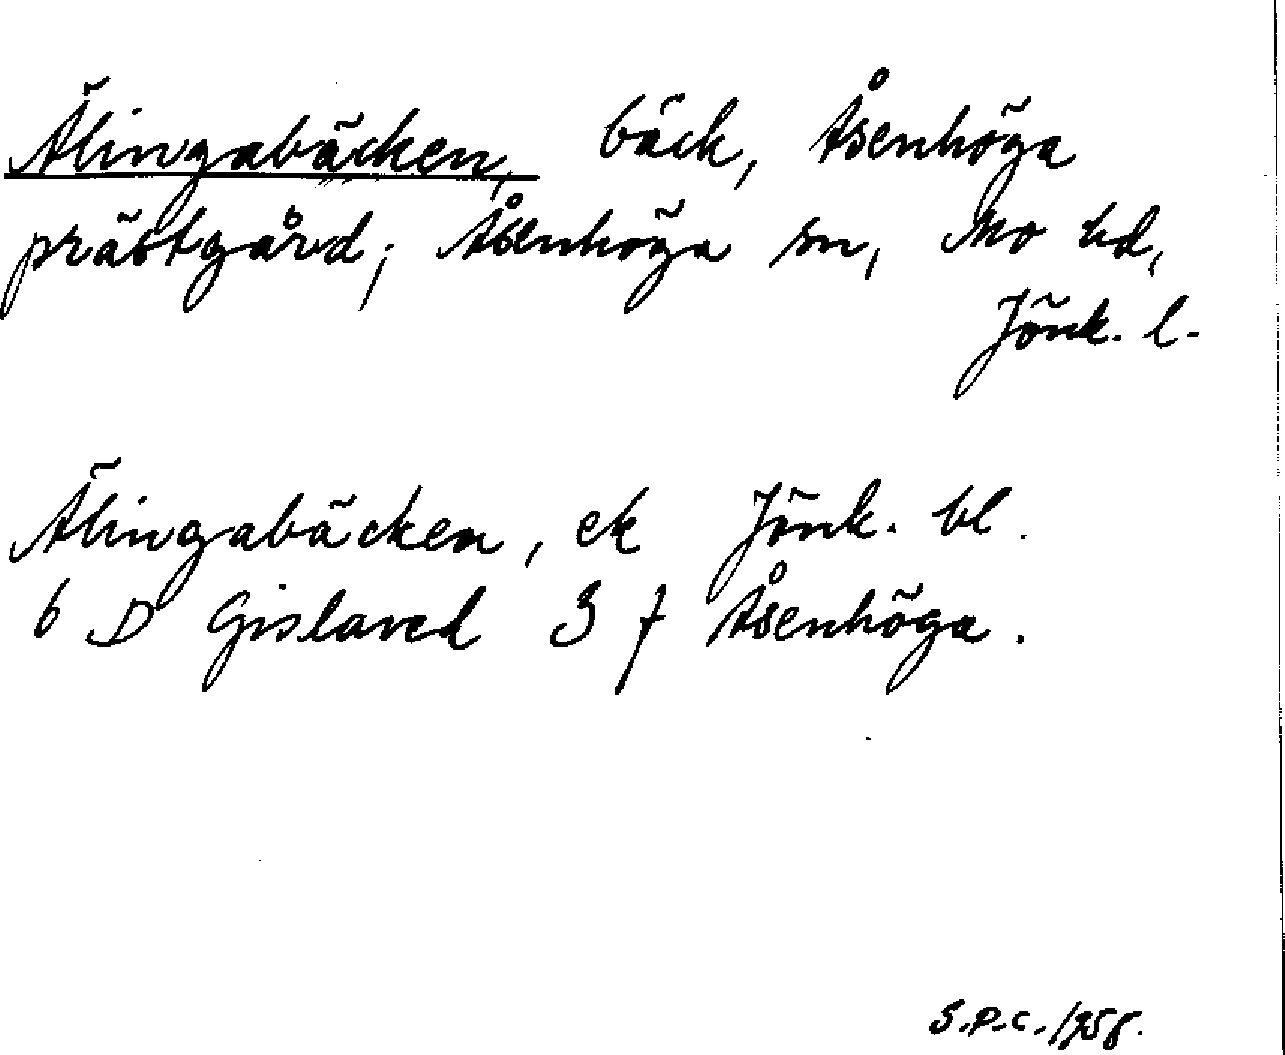 Älingabäcken, bäck, Åsenhöga
prästgård, Åsenhöga sn, Mo hd,
Jönk. l.
Älingabäcken, ek Jönk. bl.
6 D Gislaved 3 f Åsenhöga.
S.P.C. 1958.